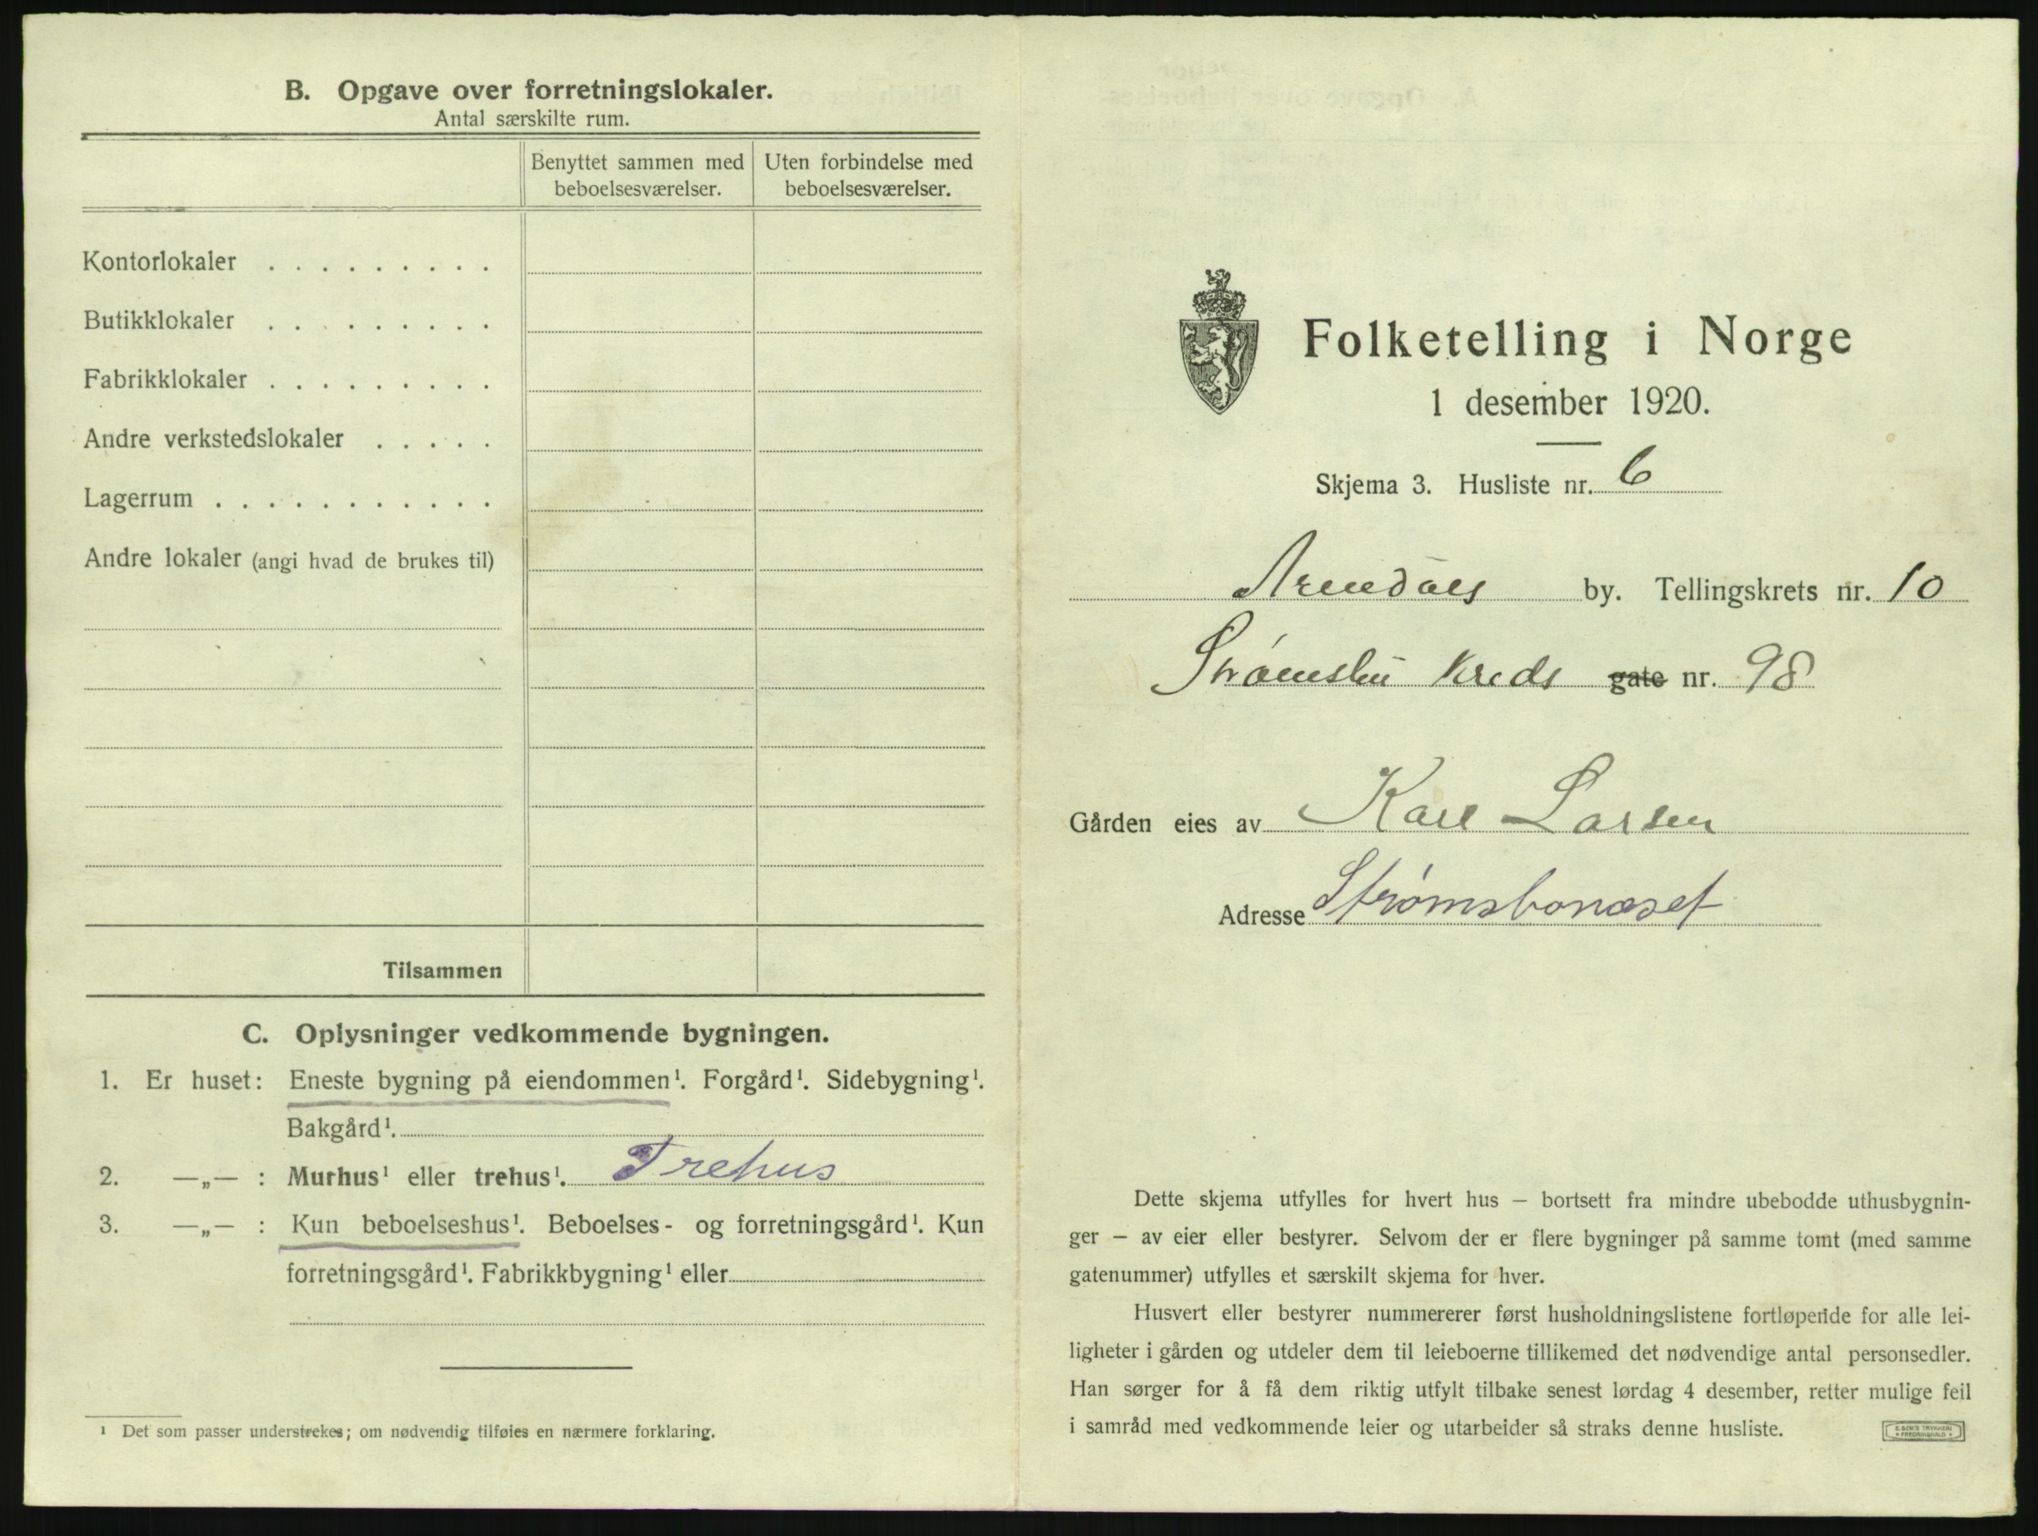 B. Opgave over forretningslokaler.
Antal særskilte rum.
Benyttet sammen med beboelsesværelser.
Uten forbindelse med beboelsesværelser.
Kontorlokaler . . . . . . . . .
Butikklokaler . . . . . . . . .
Fabrikklokaler . . . . . . . . .
Andre verkstedslokaler . . . . .
Lagerrum . . . . . . . . . . .
Andre lokaler (angi hvad de brukes til)
Tilsammen
C. Oplysninger vedkommende bygningen.
1. Er huset: Eneste bygning på eiendommen¹. Forgård¹. Sidebygning¹.
Bakgård¹.
2. —„— : Murhus¹ eller trehus¹. Trehus
3. —„— : Kun beboelseshus¹. Beboelses- og forretningsgård¹. Kun
forretningsgård¹. Fabrikkbygning¹ eller
¹ Det som passer understrekes; om nødvendig tilføies en nærmere forklaring.
Folketelling i Norge
1 desember 1920.
Skjema 3. Husliste nr. 6
Arendals by. Tellingskrets nr. 10
Strømsbu Kreds gate nr. 98
Gården eies av Karl Larsen
Adresse Strømsbonæset
Dette skjema utfylles for hvert hus – bortsett fra mindre ubebodde uthusbygnin-
ger – av eier eller bestyrer. Selvom der er flere bygninger på samme tomt (med samme
gatenummer) utfylles et særskilt skjema for hver.
Husvert eller bestyrer nummererer først husholdningslistene fortløpende for alle lei-
ligheter i gården og utdeler dem til leieboerne tillikemed det nødvendige antal personsedler.
Han sørger for å få dem riktig utfylt tilbake senest lørdag 4 desember, retter mulige feil
i samråd med vedkommende leier og utarbeider så straks denne husliste.